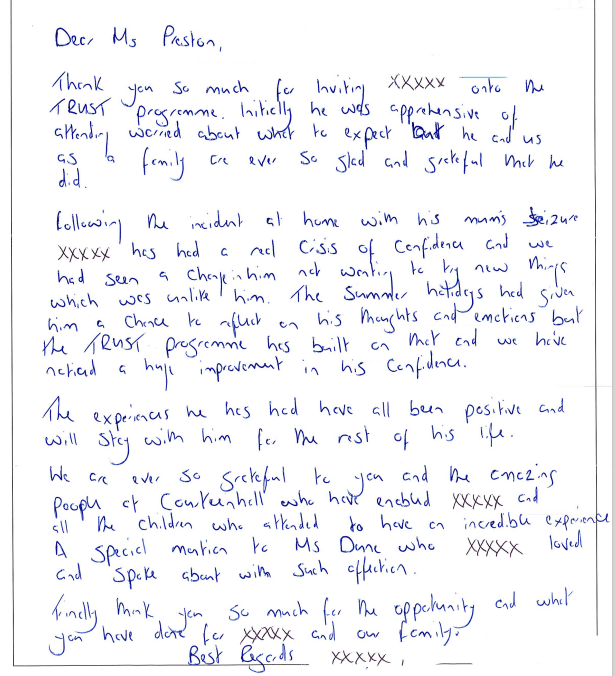 Dear Ms Preston,
Thank you so much for inviting XXXXX onto the
TRUST programme. Initially he was apprehensive of
attending worried about what to expect but he and us
as a family are ever so glad and grateful that he
did.
Following the incident at home with his mum's seizure
XXXXX has had a real Crisis of Confidence and we
had seen a change in him not wanting to try new things
which was unlike him. The Summer holidays had given
him a chance to reflect on his thoughts and emotions but
the TRUST programme has built on that and we have
noticed a huge improvement in his Confidence.
The experiences he has had have all been positive and
will stay with him for the rest of his life.
We are ever so grateful to you and the amazing
people at Courteenhall who have enabled XXXXX and
all the children who attended to have an incredible experience
A special mention to Ms Dunne who XXXXX loved
and spoke about with such affection.
Finally thank you so much for the opportunity and what
you have done for XXXXX and our family.
Best Regards XXXXX,